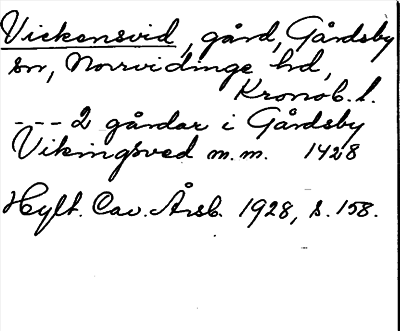 Vickensvid, gård, Gårdsby
sn, Norrvidinge hd,
Kronob. l.
--- 2 gårdar i Gårdsby
Vikingsved m.m. 1428
Hylt. Cav. Årsb. 1928, s. 158.